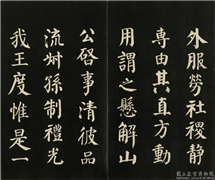 外服勞社稷静
専由其直方動
用謂之懸解山
公啓事清彼品
流叔孫制禮光
我王度惟是一
國立故宮博物院